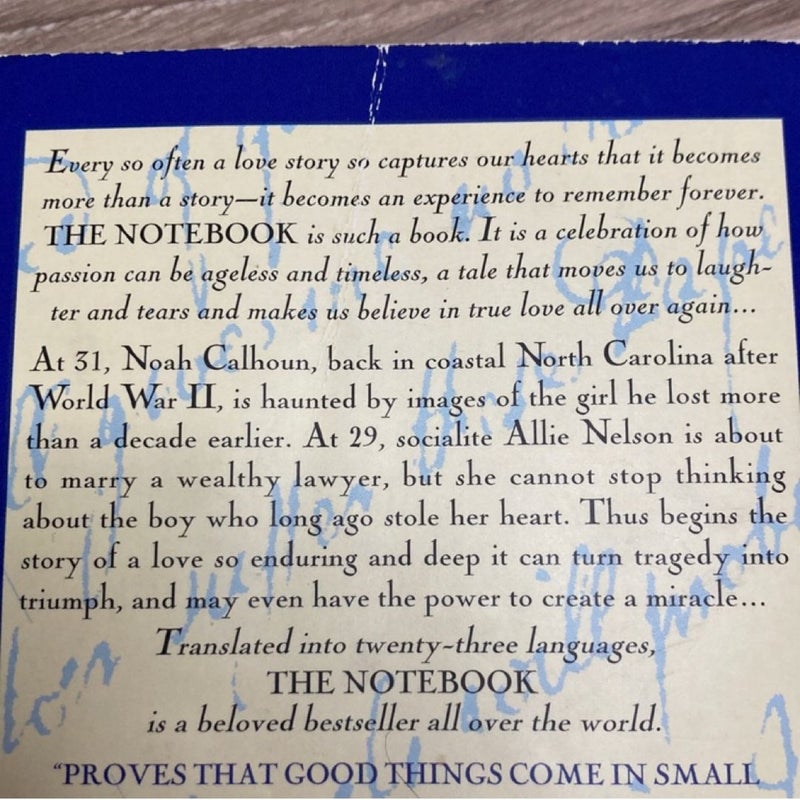 Every so often a love story so captures our hearts that it becomes
more than a story—it becomes an experience to remember forever.
THE NOTEBOOK is such a book. It is a celebration of how
passion can be ageless and timeless, a tale that moves us to laugh-
ter and tears and makes us believe in true love all over again...
At 31, Noah Calhoun, back in coastal North Carolina after
World War II, is haunted by images of the girl he lost more
than a decade earlier. At 29, socialite Allie Nelson is about
to marry a wealthy lawyer, but she cannot stop thinking
about the boy who long ago stole her heart. Thus begins the
story of a love so enduring and deep it can turn tragedy into
triumph, and may even have the power to create a miracle...
Translated into twenty-three languages,
THE NOTEBOOK
is a beloved bestseller all over the world.
“PROVES THAT GOOD THINGS COME IN SMALL